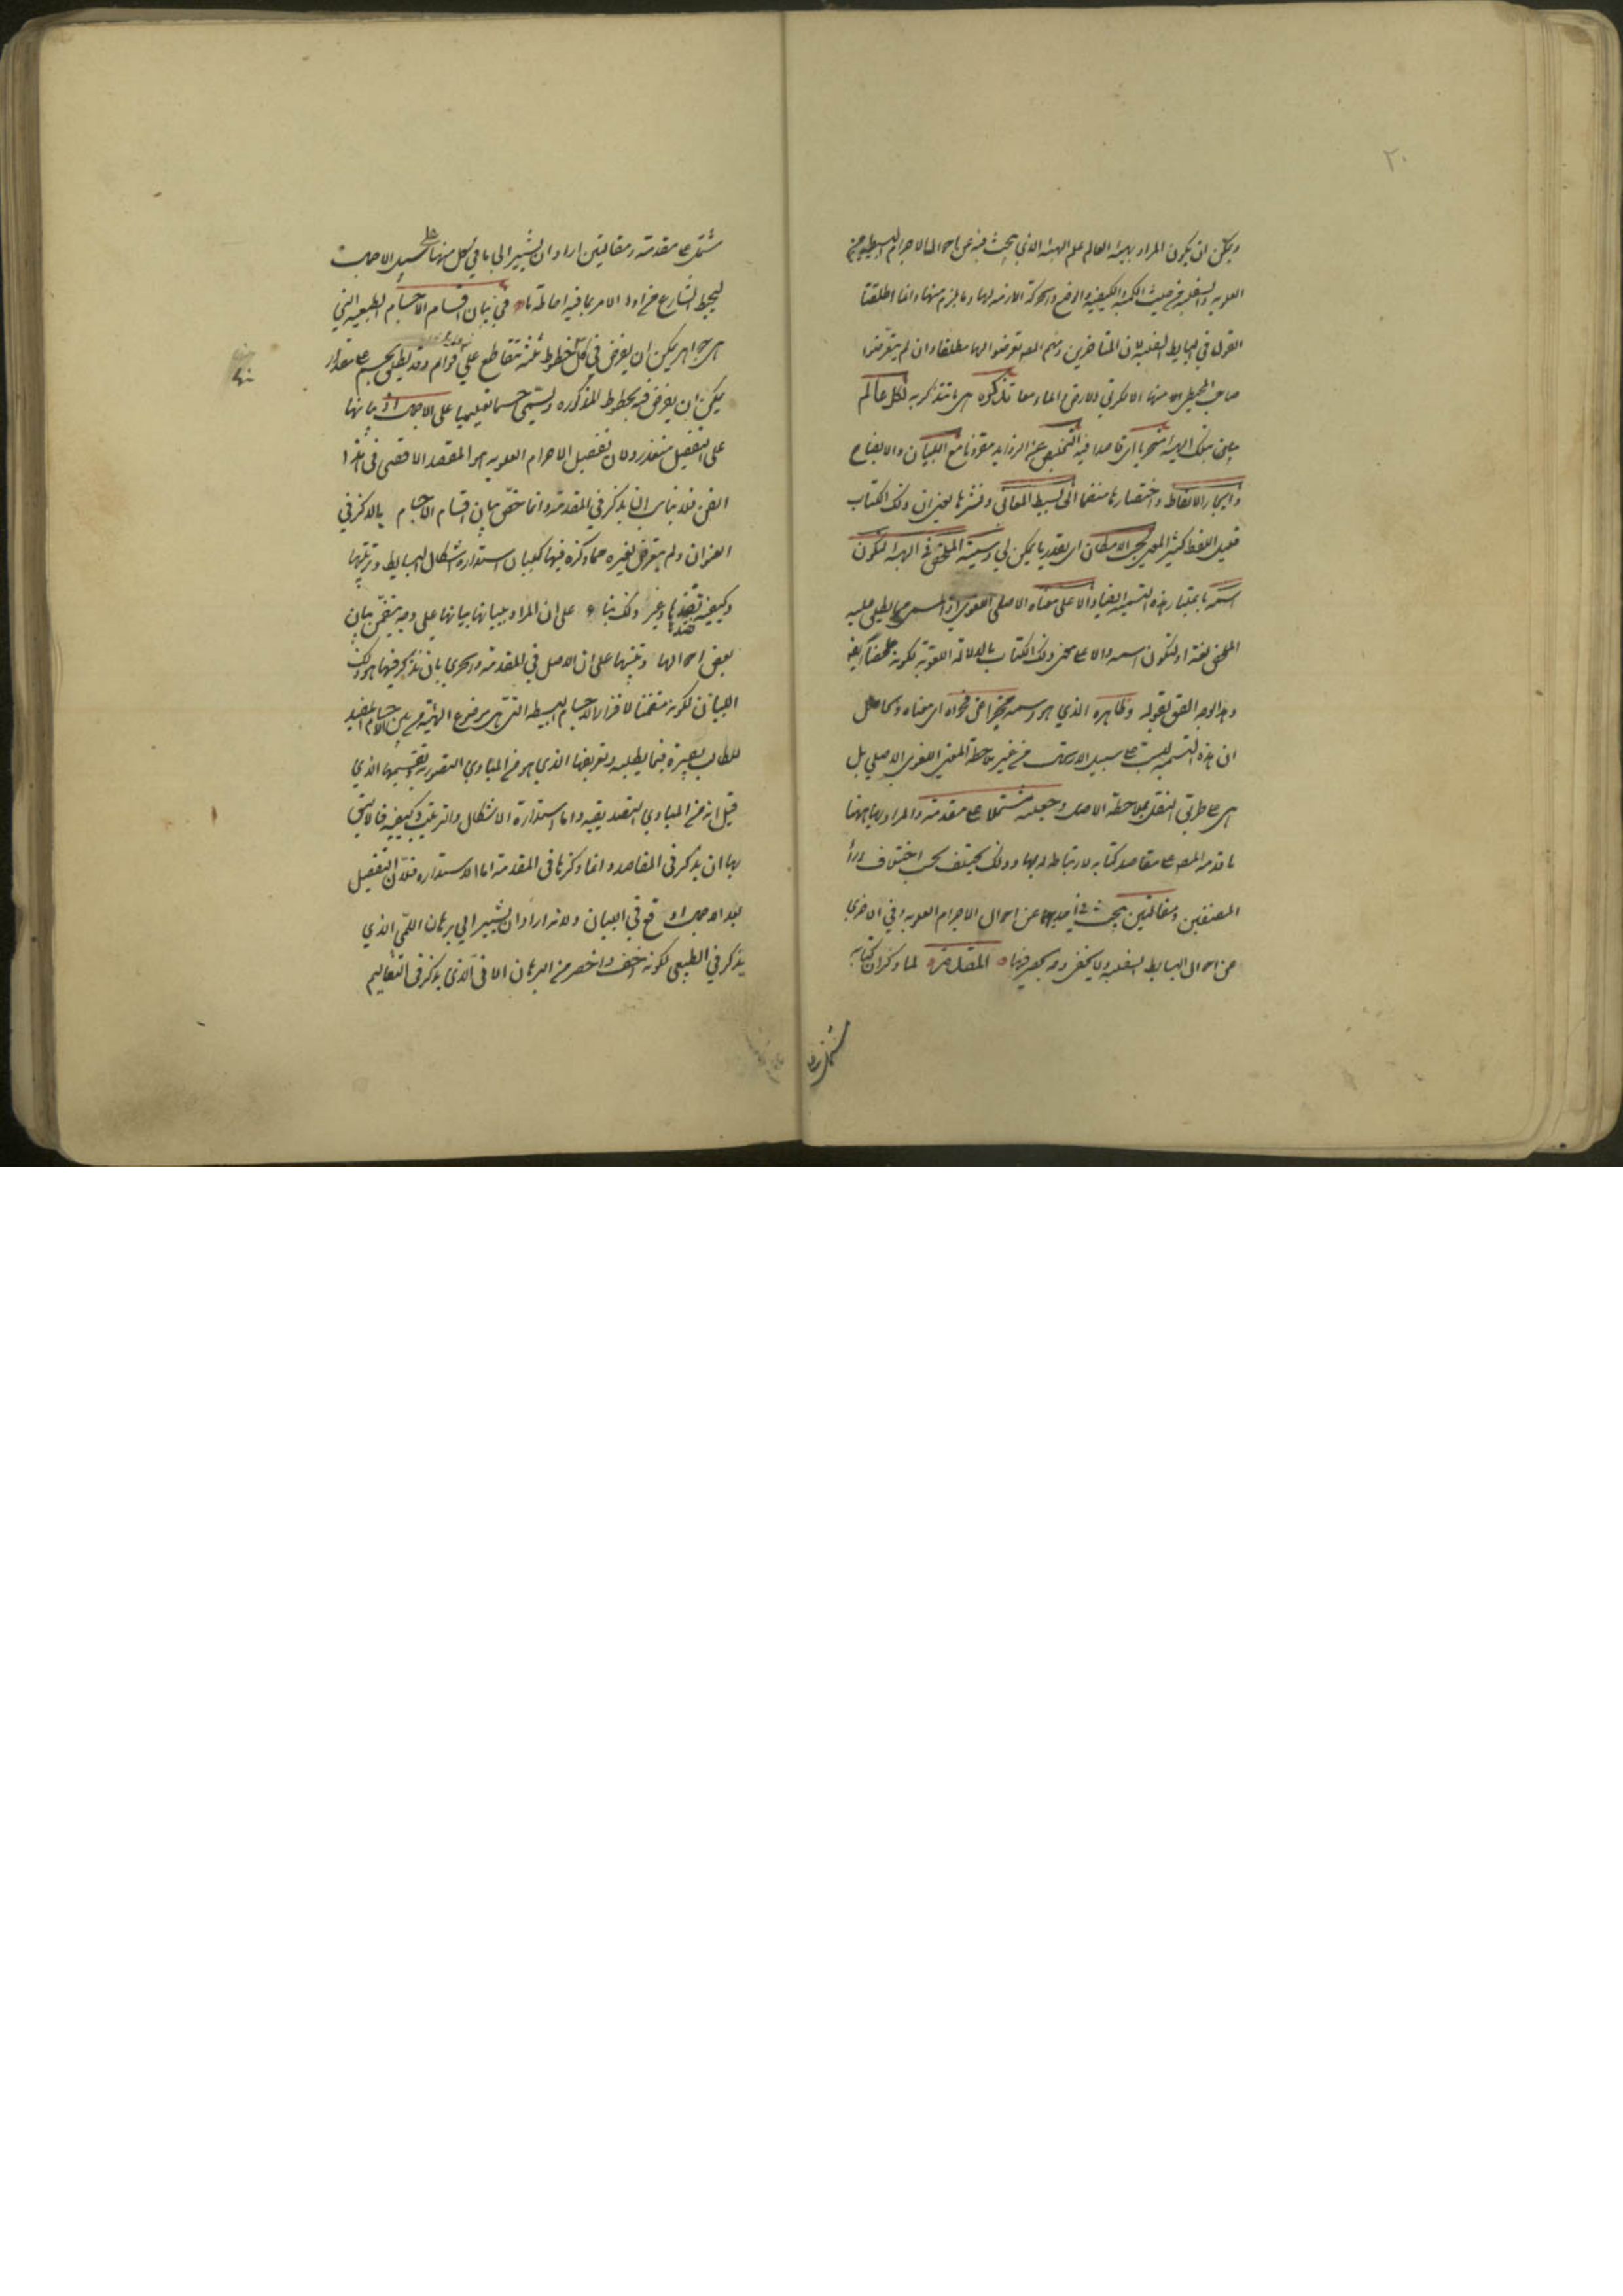 ٢٠
ويمكن ان يكون المراد بهيئة العالم علم الهيئة الذي يبحث فيه عن احوال الاجرام البسيطة من
العلوية والسفلية من حيث الكمية والكيفية والوضع والحركة اللازمة لها وما يلزم منها وانما اطلقنا
القول في البسايط السفلية لان المتأخرين ومنهم المص تعرضوا لها مطلقا وان لم يتعرض
صاحب المجسطى منها الا لكرتي الارض والماء معا تذكرة اى ما يتذكر به لكل عالم
بتلك الهيئة متحريا اى قاصدا فيه التخليص عن الزوايد مقرونا مع البيان والايضاح
وايجاز الالفاظ واختصارها منضما الى بسط المعانى ونشرها ذلك الكتاب
قليل اللفظ كثير المعنى بحسب الامكان اى بقدر ما يمكن لي وسميته الملخص في الهيئة ليكون
اسمه باعتبار هذه التسمية ايضا دالا على معناه الاصلى اللغوي
الملخص لغة او ليكون اسمه دالا على ذلك الكتاب بالدلالة اللغوية لكونه ملخصا
وهذا الوجه الصق بقوله وظاهره الذي هو اسمه مخبرا عن فحواه اى معناه والحاصل
ان هذه التسمية ليست على سبيل الارتجال من غير ملاحظة المعنى اللغوي الاصلي بل
هى على طريق النقل بملاحظة الاصل وجعله مشتملا على مقدمة والمراد بها ههنا
ما قدمه المص على مقاصد كتابه لارتباطه بها وذلك يختلف بحسب اختلاف
المصنفين ومقالتين يبحث في احديهما عن احوال الاجرام العلوية وفي الاخرى
عن احوال البسايط السفلية ولا يخفى وجه حصر فيها المقدمة لما ذكر ان كتابه
مشتمل على
مشتمل على مقدمة ومقالتين اراد ان يشير الى ما في كل منها على سبيل الاجمال
ليحيط الشارع من اول الامر بما فيه احاطة ما في بيان اقسام الاجسام الطبيعية التي
هى جواهر يمكن ان يفرض في كل خطوط ثلثة تتقاطع على قوايم وقد يطلق الجسم على مقدار
يمكن ان يفرض فيه الخطوط المذكورة ويسمى جسما تعليميا على الاجمال اذ بيانها
على التفصيل متعذر ولان تفصيل الاجرام العلوية هو المقصد الاقصى في هذا
الفن فلا يناسب ان يذكر في المقدمة وانما خص بيان اقسام الاجسام بالذكر في
العنوان ولم يتعرض لغيره مما ذكره فيها كبيان استدارة اشكال البسايط وترتيبها
وكيفية نضدها وغير ذلك بناء على ان المراد ببيانها بيانها على وجه يتضمن بيان
بعض احوالها وتنبيها على ان الاصل في المقدمة والحري بان يذكر فيها هو ذلك
البيان لكونه متضمنا لافراز الاجسام البسيطة التي هى موضوع الهيئة من بين الاجسام المفيد
للطالب بصيرة فيما يطلبه وتعريفها الذي هو من المبادي التصورية وتقسيمها الذي
قيل انه من المبادي التصديقية واما استدارة الاشكال والترتيب وكيفيته فالاليق
بها ان يذكر في المقاصد وانما ذكرها في المقدمة اما الاستدارة فلان التفصيل
بعد الاجمال اوقع في البيان ولانه اراد ان يشير الى برهان اللمي الذي
يذكر في الطبيعى لكونه اخف واخصر من البرهان الانى الذي يذكر في التعاليم